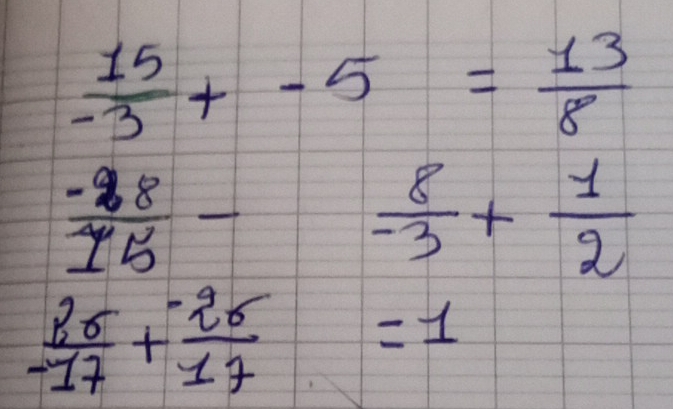 15/-3 + -5 = 13/8
-28/15 - 8/-3 + 1/2
26/-17 + -26/17 = 1